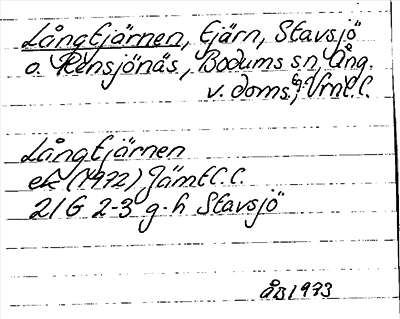 Långtjärnen, tjärn, Stavsjö
o. Rensjönäs, Bodums sn, Ång.
v. doms., Vrnl.l.
Långtjärnen
ek (1972) Jämtl.l.
21G 2-3 g-h Stavsjö
ÅB 1973